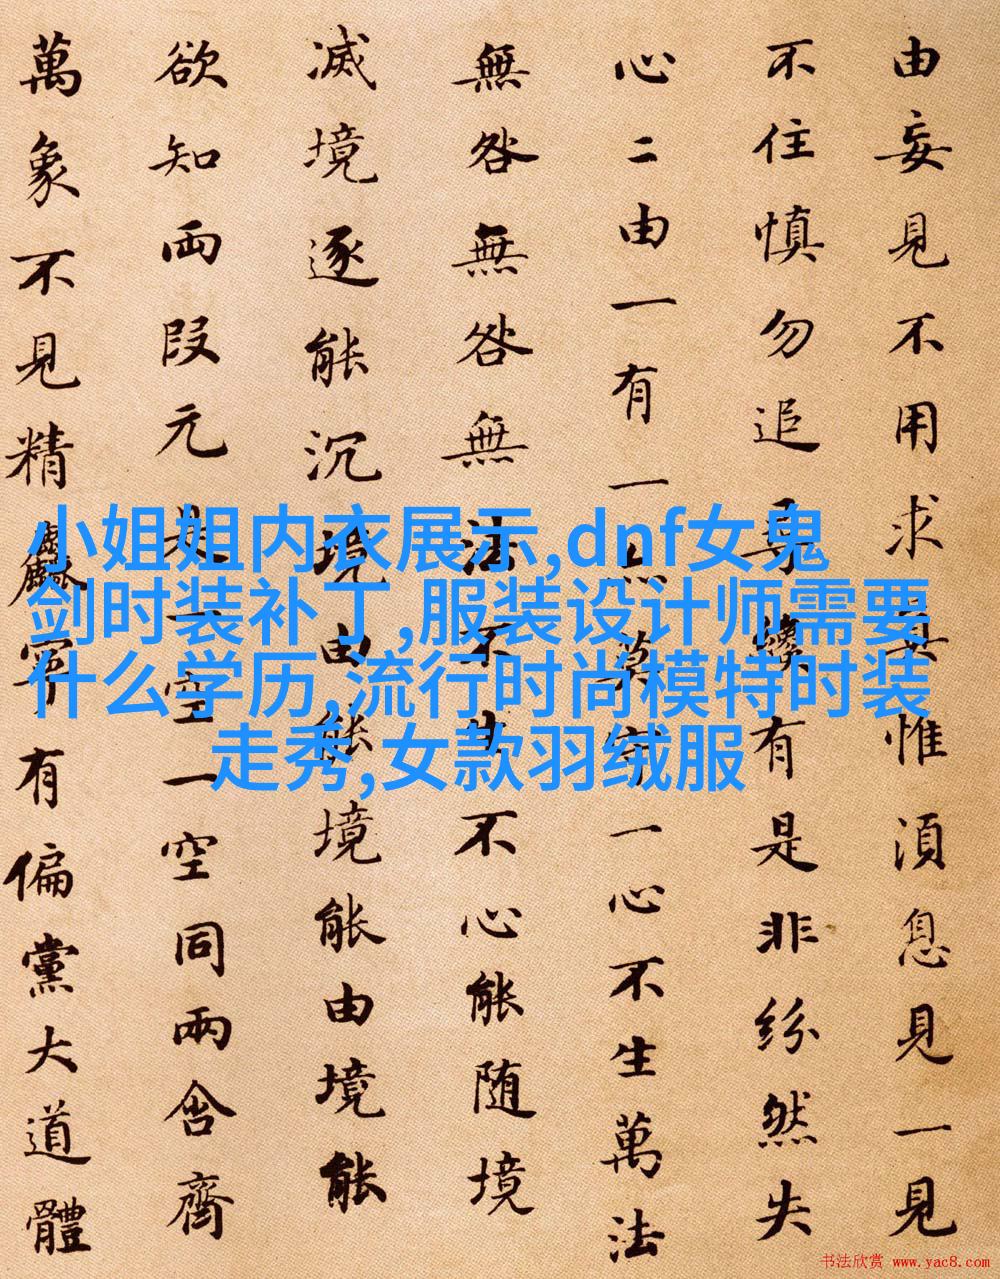 小姐姐内衣展示,dnf女鬼
剑时装补丁,服装设计师需要
什么学历,流行时尚模特时装
走秀,女款羽绒服
由妄見不用求真惟湏息見一見
不住慎勿追尋纔有是非紛然失
心二由一有一亦莫守一心不生萬法
無咎無咎無法不生不心能随境
滅境逐能沉境由能境能由境能
欲知両段元一空一空同兩含齊
萬象不見精麤寧有偏黨大道體
书法欣赏 www.yac8.com